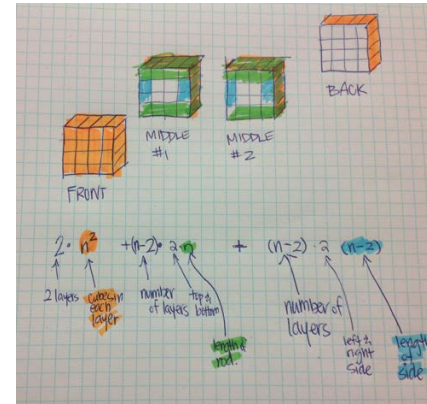 BACK
MIDDLE
#1
MIDDLE
#2
FRONT
2 · n² + (n-2) · 2 n + (n-2) · 2 (n-2)
2 layers
cubes in
each
layer
number
of layers
top &
bottom
length of
rod.
number of
layers
left &
right
side
length
of
side